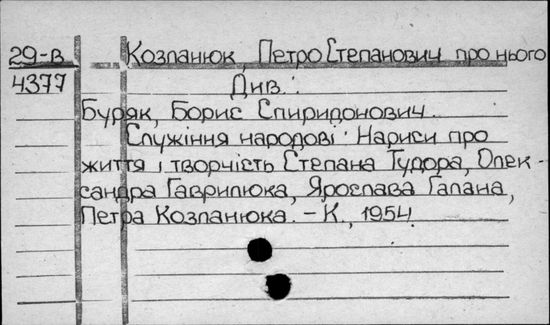 29-В Козланюк, Петро Степанович про нього
4377 Див.:
Буряк, Борис Спиридонович.
Служіння народові: Нариси про
життя і творчість Степана Тудора, Олек-
сандра Гаврилюка, Ярослава Галана,
Петра Козланюка. – К., 1954